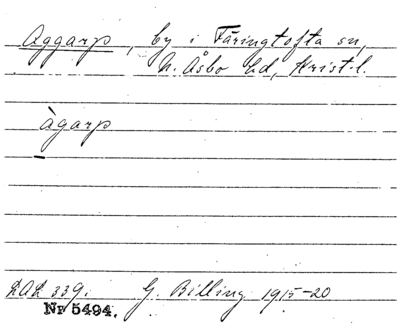 Aggarp, by i Färingtofta sn,
N. Åsbo hd, Krist. l.
àgarp
LAL 339. G. Billing 1915-20
Nr 5494.